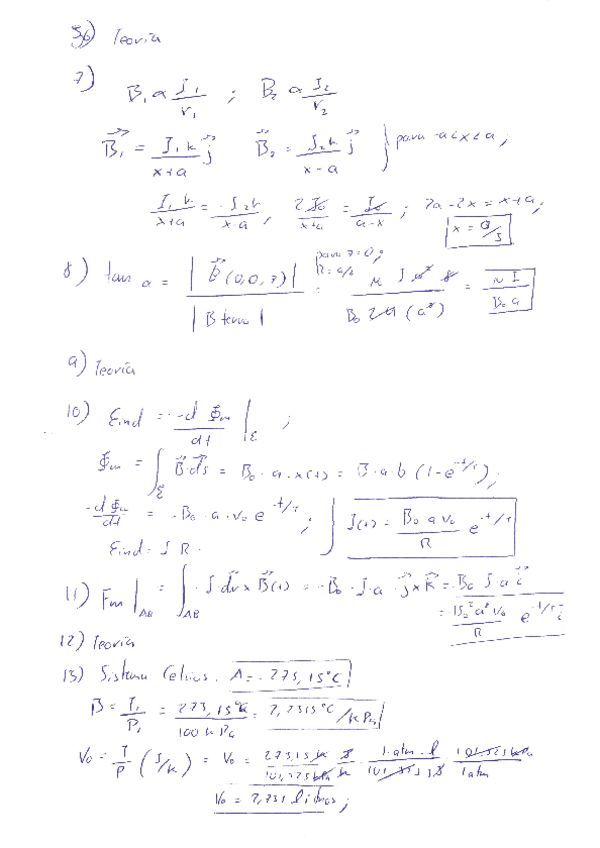 36) Teoría
7) B₁ ∝ I₁/r₁ ; B₂ ∝ I₂/r₂
B₁ = I₁ k/(x+a) j B₂ = I₂ k/(x-a) j } para -a<x<a;
I₁ k/(x+a) = -I₂ k/(x-a), 2I₀/(x+a) = I₀/(a-x) ; 2a-2x = x+a; x = a/3
8) tan α = |B(0,0,z)| / |B terr| = = μ I / B₀ a
para z=0;
9) Teoría
10) Eind = -d Φm/dt | ;
Φm = ∫ B·ds = B₀ · a · x(t) = B·a b (1-e^-t/τ);
-dΦm/dt = -B₀ · a · v₀ e^-t/τ ; } I(t) = B₀ a v₀/R e^-t/τ
Eind = I R.
11) Fm |AB = ∫AB · I dr × B(t) = -B₀ · I·a · j × k = -B₀ I a i
= B₀² a² v₀/R e^-t/τ i
12) Teoría
13) Sistema Celsius. A = -273,15°C
B = T₁/P₁ = 273,15°C/100 kPa = 2,7315°C/kPa
V₀ = T/P (J/K) = V₀ = 1 atm · l 101,325 kPa/1 atm
V₀ = 2,731 litros;